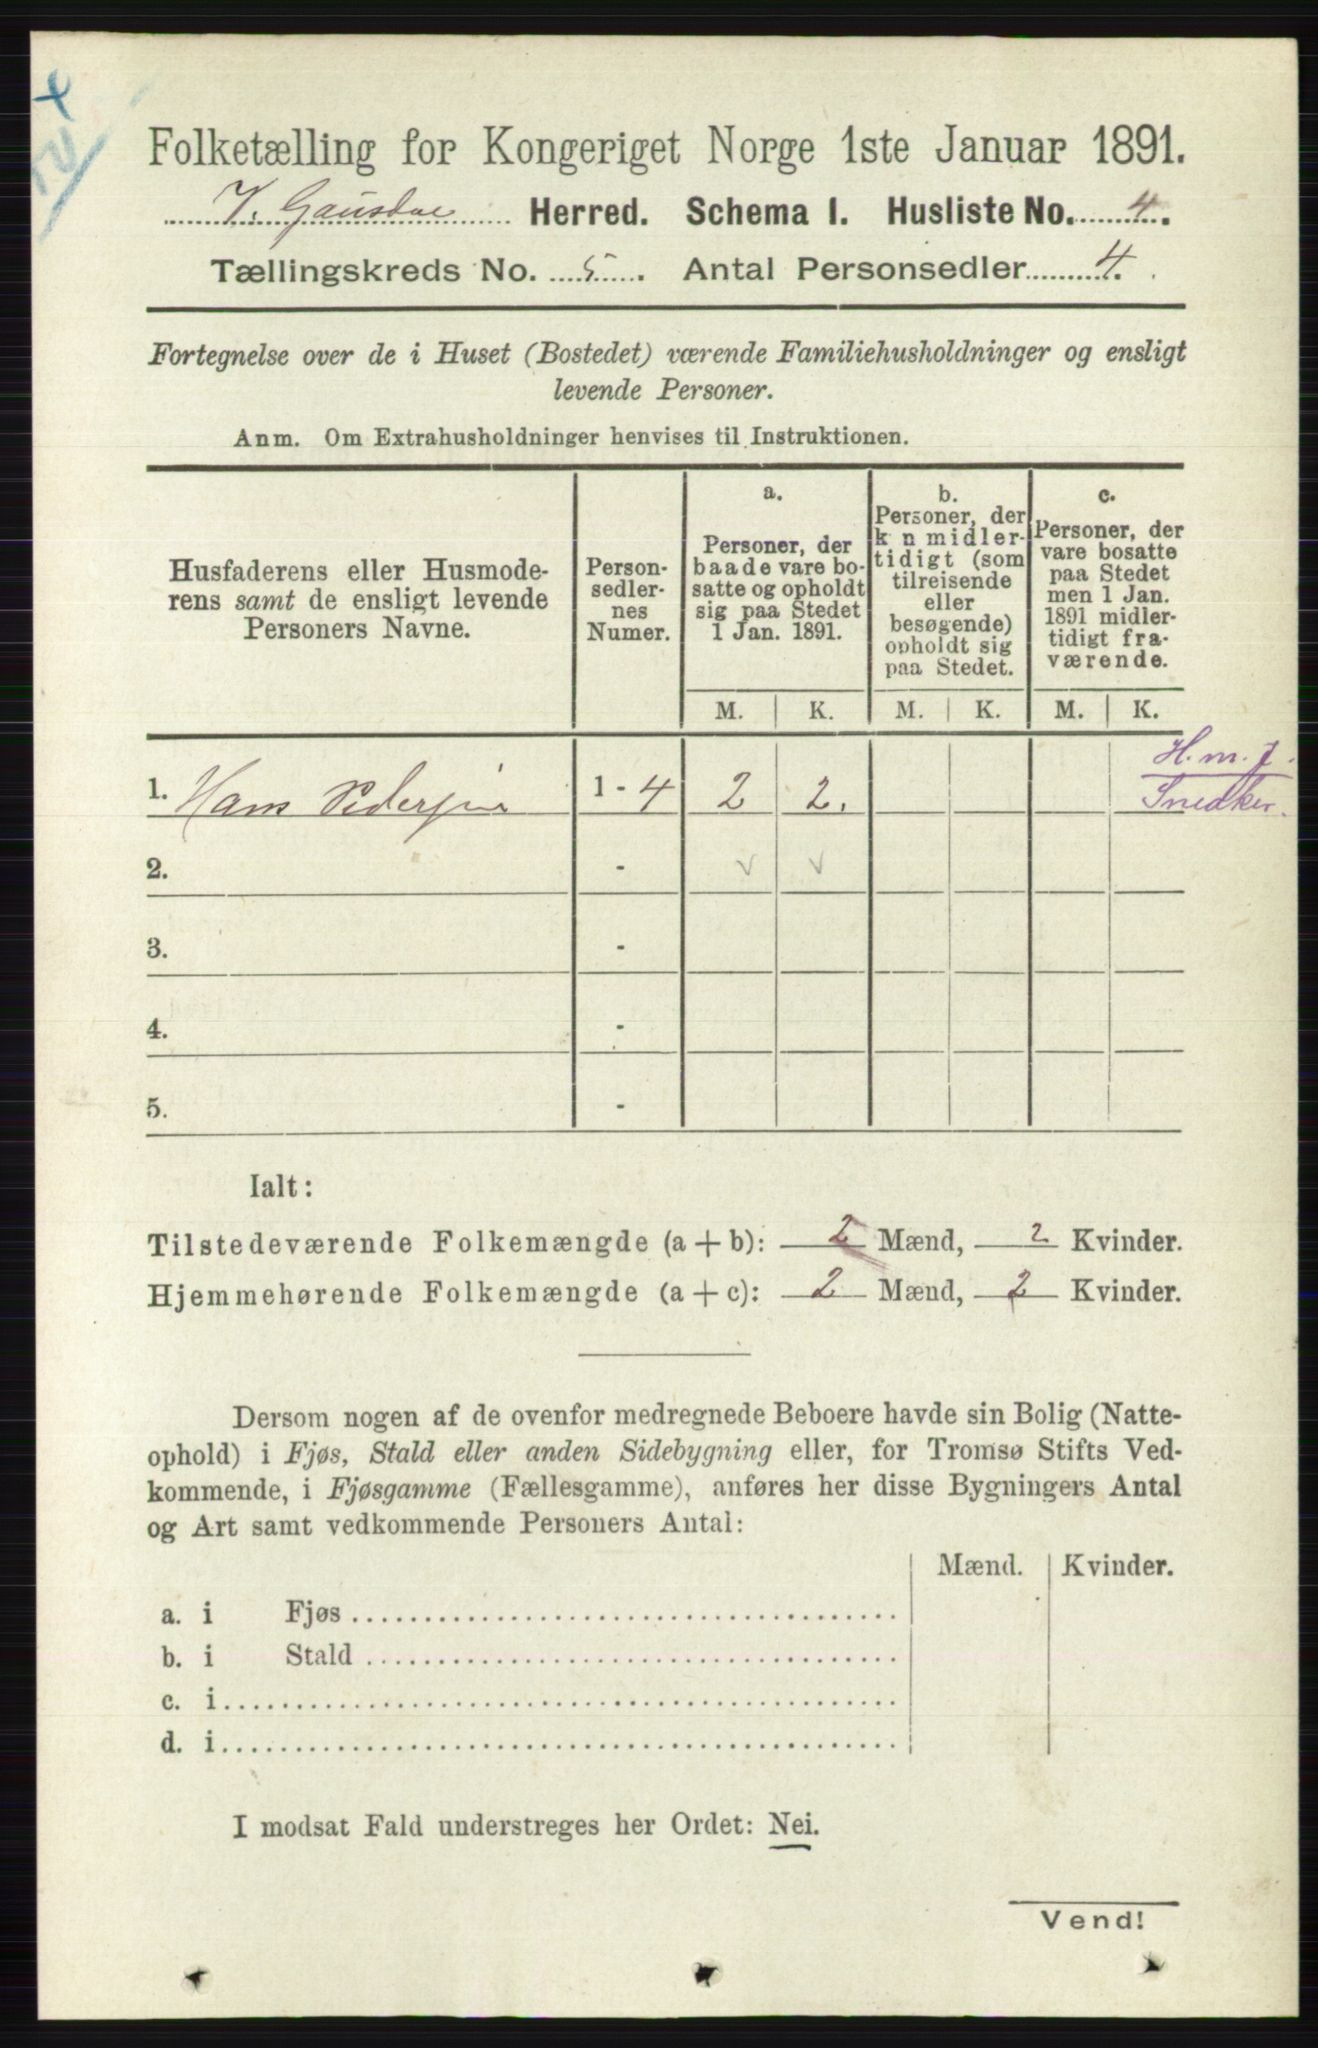 Folketælling for Kongeriget Norge 1ste Januar 1891.
V. Gausdal Herred. Schema I. Husliste No. 4.
Tællingskreds No. 5. Antal Personsedler 4.
Fortegnelse over de i Huset (Bostedet) værende Familiehusholdninger og ensligt
levende Personer.
Anm. Om Extrahusholdninger henvises til Instruktionen.
Husfaderens eller Husmode-
rens samt de ensligt levende
Personers Navne.
Person-
sedler-
nes
Numer.
a.
Personer, der
baade vare bo-
satte og opholdt
sig paa Stedet
1 Jan. 1891.
b.
Personer, der
k n midler-
tidigt (som
tilreisende
eller
besøgende)
opholdt sig
paa Stedet.
c.
Personer, der
vare bosatte
paa Stedet
men 1 Jan.
1891 midler-
tidigt fra-
værende.
M. K. M. K. M. K.
H. m. f.
Snedker.
1. Hans Pedersen 1 - 4 2 2.
2. - v v
3. -
4. -
5. -
Ialt:
Tilstedeværende Folkemængde (a + b): 2 Mænd, 2 Kvinder.
Hjemmehørende Folkemængde (a + c): 2 Mænd, 2 Kvinder.
Dersom nogen af de ovenfor medregnede Beboere havde sin Bolig (Natte-
ophold) i Fjøs, Stald eller anden Sidebygning eller, for Tromsø Stifts Ved-
kommende, i Fjøsgamme (Fællesgamme), anføres her disse Bygningers Antal
og Art samt vedkommende Personers Antal:
Mænd. Kvinder.
a. i Fjøs
b. i Stald
c. i
d. i
I modsat Fald understreges her Ordet: Nei.
Vend!